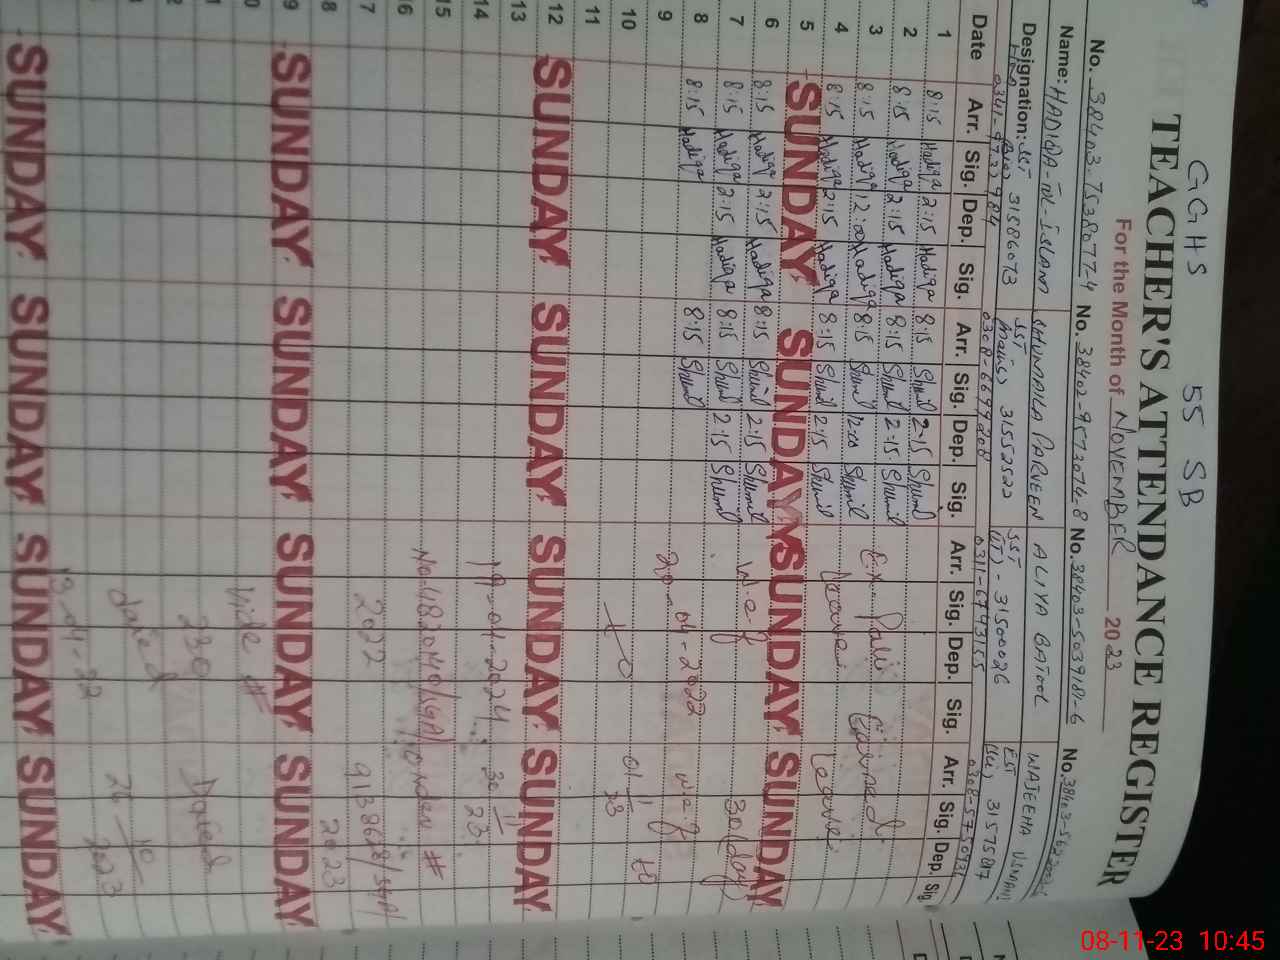 GGHS 55 SB
TEACHER'S ATTENDANCE REGISTER
For the Month of NOVEMBER 2023
No. 38403-7538077-4 No. 38402-9573074-8 No. 38403-5039181-6 No. 38403-562
Name: HADIQA-UL-ISLAM SHUMAILA PARVEEN ALIYA BATOOL WAJEEHA USMAN
Designation: SST 31586073 SST (Maths) 31552522 SST (IT) - 31500026 EST 3157587
0308-6699208 0311-6743155
Date Arr. Sig. Dep. Sig. Arr. Sig. Dep. Sig. Arr. Sig. Dep. Sig. Arr. Sig. Dep. Sig
1 8:15 Hadiqa 2:15 Hadiqa 8:15 Shumil 2:15 Shumil
2 8:15 Hadiqa 2:15 Hadiqa 8:15 Shumil 2:15 Shumil
3 8:15 Hadiqa 12:00 Hadiqa 8:15 Shumil 12:00 Shumil Ex-Pak Earned
4 8:15 Hadiqa 2:15 Hadiqa 8:15 Shumil 2:15 Shumil Leave
5 SUNDAY SUNDAY SUNDAY SUNDAY
6 8:15 Hadiqa 2:15 Hadiqa 8:15 Shumil 2:15 Shumil
7 8:15 Hadiqa 2:15 Hadiqa 8:15 Shumil 2:15 Shumil W.e.f 30(day)
8 8:15 Hadiqa 8:15 Shumil
9 20-04-2022 w.e.f
10 to 01/11/23 to
11
12 SUNDAY SUNDAY SUNDAY SUNDAY
13
14 19-04-2024 30/11/23
15
16 order #
17 2022
18 2023
19 SUNDAY SUNDAY SUNDAY SUNDAY
0 Vide #
1 230 Dated
2 dated 26-10/2023
SUNDAY SUNDAY SUNDAY SUNDAY
08-11-23 10:45